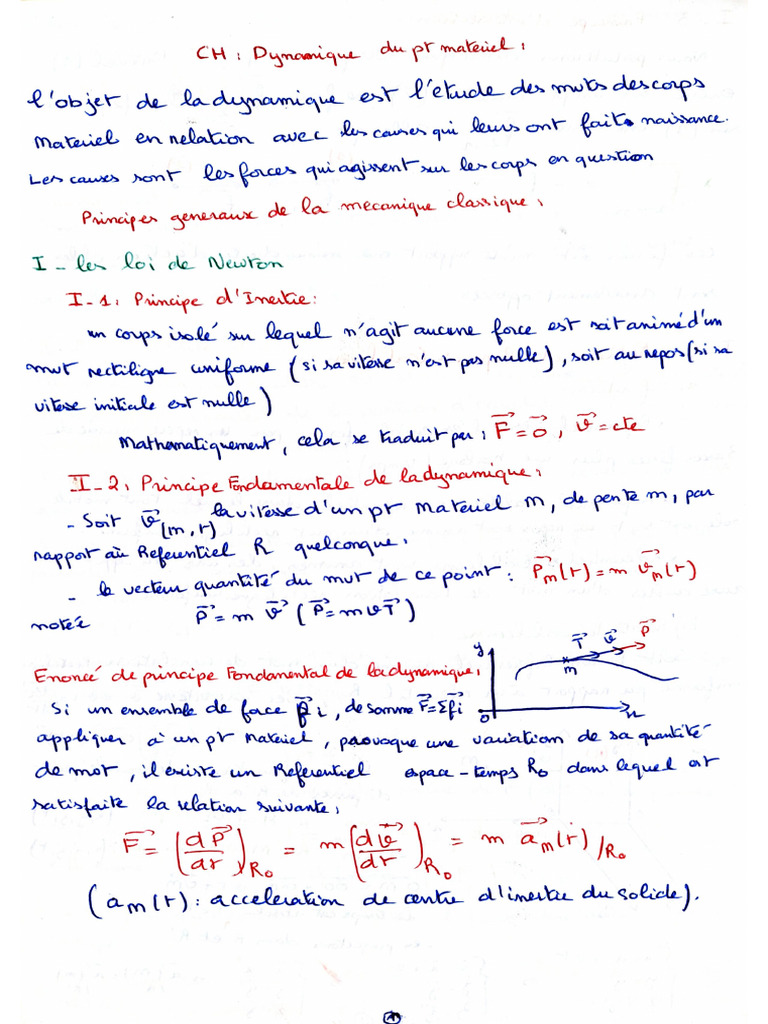 CH : Dynamique du pt materiel :
l'objet de la dynamique est l'étude des mvts des corps
Materiel en relation avec les causes qui leurs ont fait naissance.
Les causes sont les forces qui agissent sur les corps en question
Principes generaux de la mecanique classique :
I - les loi de Newton
I - 1 : Principe d'Inertie :
un corps isolé sur lequel n'agit aucune force est soit animé d'un
mvt rectiligne uniforme (si sa vitesse n'est pas nulle), soit au repos (si sa
vitesse initiale est nulle)
Mathematiquement, cela se traduit par : F⃗ = 0⃗ , v⃗ = cte
I - 2 : Principe Fondamentale de la dynamique :
- Soit v⃗(m,t) la vitesse d'un pt Materiel m, de pente m, par
rapport au Referentiel R quelconque.
- le vecteur quantité du mvt de ce point : P⃗m(t) = m v⃗m(t)
notée P⃗ = m v⃗ (P⃗ = m v T⃗)
y T⃗ v⃗ P⃗
m
Enoncé de principe Fondamental de la dynamique :
0 x
Si un ensemble de force f⃗i, de somme F⃗ = Σf⃗i
appliquer à un pt Materiel, provoque une variation de sa quantité
de mvt, il existe un Referentiel espace-temps R₀ dans lequel est
satisfaite la relation suivante :
F⃗ = (dP⃗/dt)R₀ = m (dv⃗/dt)R₀ = m a⃗m(t)/R₀
(am(t) : acceleration de centre d'inertie du solide).
1